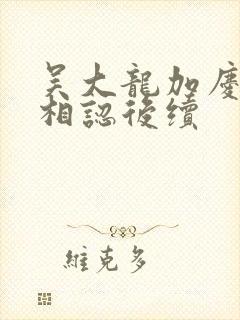 吴大龍加慶
相認後續
維克多